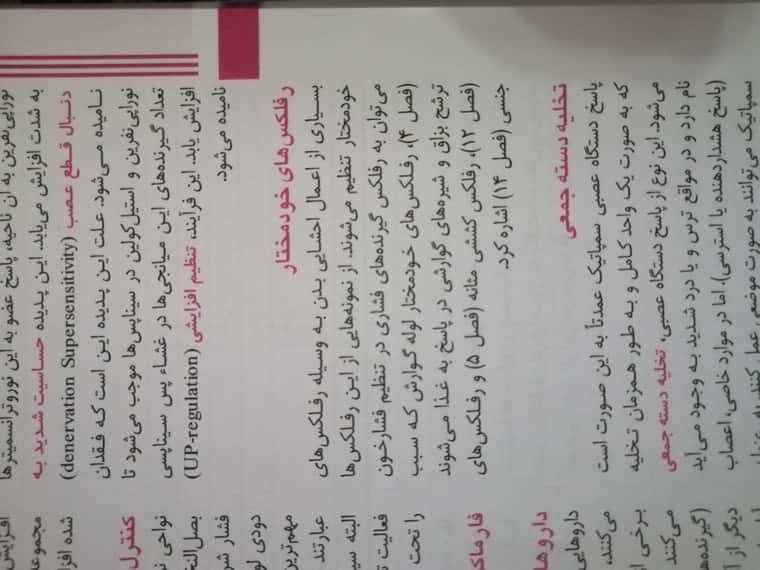 نوراپی‌نفرین به آن ناحیه، پاسخ عضو به این نوروترانسمیترها
به شدت افزایش می‌یابد. این پدیده حساسیت شدید به
دنبال قطع عصب (denervation Supersensitivity)
نامیده می‌شود. علت این پدیده این است که فقدان
نوراپی‌نفرین و استیل‌کولین در سیناپس‌ها موجب می‌شود تا
تعداد گیرنده‌های این میانجی‌ها در غشاء پس سیناپسی
افزایش یابد. این فرآیند، تنظیم افزایشی (UP-regulation)
نامیده می‌شود.
رفلکس‌های خودمختار
بسیاری از اعمال احشایی بدن به وسیله رفلکس‌های
خودمختار تنظیم می‌شوند. از نمونه‌هایی از این رفلکس‌ها
می‌توان به رفلکس گیرنده‌های فشاری در تنظیم فشارخون
(فصل ۴)، رفلکس‌های خودمختار لوله گوارش که سبب
ترشح بزاق و شیره‌های گوارشی در پاسخ به غذا می‌شوند
(فصل ۱۲)، رفلکس کششی مثانه (فصل ۵) و رفلکس‌های
جنسی (فصل ۱۴) اشاره کرد.
تخلیه دسته جمعی
پاسخ دستگاه عصبی سمپاتیک عمدتاً به این صورت است
که به صورت یک واحد کامل و به طور همزمان تخلیه
می‌شود. این نوع از پاسخ دستگاه عصبی، تخلیه دسته جمعی
نام دارد و در مواقع ترس و یا درد شدید به وجود می‌آید
(پاسخ هشداردهنده یا استرسی). اما در موارد خاصی، اعصاب
سمپاتیک می‌توانند به صورت موضعی عمل کنند. به عنوان
افزایش
مجموعه
شده افز
کنترل
نواحی
بصل‌النخ
فشار شر
دودی لو
مهم‌ترین
عبارتند
البته سی
فعالیت
را تحت
فارماک
داروها
داروهایی
می‌کنند،
برخی از
می‌کنند
(گیرنده‌ه
دیگر از آ